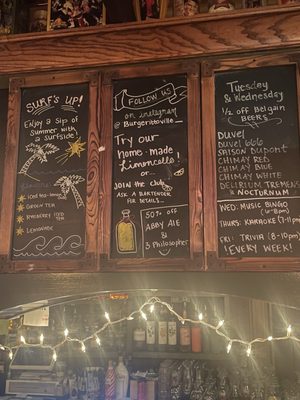 SURF'S UP!
ENJOY A SIP OF
SUMMER WITH
A SURFSIDE!
ICED TEA
GREEN TEA
RASPBERRY ICED TEA
LEMONADE
FOLLOW US
on instagram
@ Burgerittoville
Try our
home-made
Limoncello!
or...
JOIN the CLUB
ASK A BARTENDER
FOR DETAILS...
50% OFF
ABBY ALE
& 3 Philosopher
Tuesday &
Wednesday
1/2 off Belgain
BEERS
DUVEL
DUVEL 666
SAISON DUPONT
CHIMAY RED
CHIMAY BLUE
CHIMAY WHITE
DELIRIUM TREMENS
& NOCTURNUM
WED: MUSIC BINGO
THURS: KARAOKE (7-11PM)
FRI: TRIVIA (8-10PM)
! EVERY WEEK!